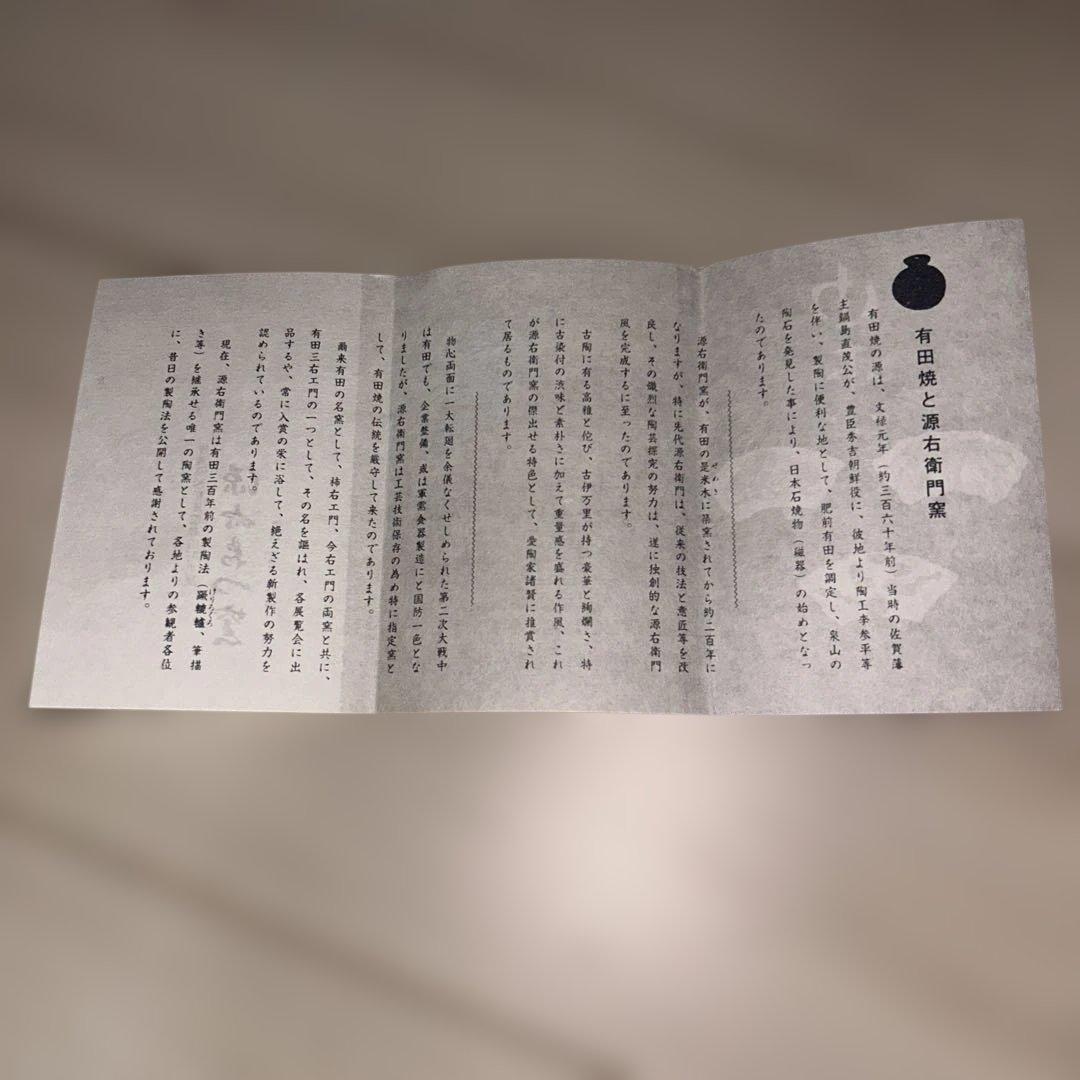 有田焼と源右衛門窯
有田焼の源は、文禄元年（約三百六十年前）当時の佐賀藩
主鍋島直茂公が、豊臣秀吉朝鮮役に、彼地より陶工李参平等
を伴い、製陶に便利な地として、肥前有田を調定し、泉山の
陶石を発見した事により、日本石焼物（磁器）の始めとなっ
たのであります。
源右衛門窯が、有田の是米木に築窯されてから約二百年に
ぜめき
なりますが、特に先代源右衛門は、従来の技法と意匠等を改
良し、その熾烈な陶芸探究の努力は、遂に独創的な源右衛門
風を完成するに至ったのであります。
古陶に有る高雅と佗び、古伊万里が持つ豪華と絢爛さ、特
に古染付の渋味と素朴さに加えて重量感を盛れる作風、これ
が源右衛門窯の傑出せる特色として、愛陶家諸賢に推賞され
て居るものであります。
物心両面に一大転廻を余儀なくせしめられた第二次大戦中
は有田でも、企業整備、或は軍需食器製造にと国防一色とな
りましたが、源右衛門窯は工芸技術保存の為め特に指定窯と
して、有田焼の伝統を厳守して来たのであります。
爾来有田の名窯として、柿右エ門、今右エ門の両窯と共に、
有田三右エ門の一つとして、その名を謳はれ、各展覧会に出
品するや、常に入賞の栄に浴して、絶えざる新製作の努力を
認められているのであります。
現在、源右衛門窯は有田三百年前の製陶法（蹴轆轤、筆描
けりろくろ
き等）を継承せる唯一の陶窯として、各地よりの参観者各位
に、昔日の製陶法を公開して感謝されております。